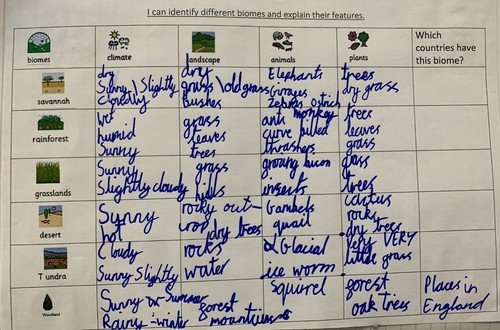 I can identify different biomes and explain their features.
biomes climate landscape animals plants Which countries have this biome?
dry dry Elephants trees
savannah Sunny \ Slightly grass \ old grass Giraffes dry grass
bushes Zebras Ostrich
wet grass ants monkey trees
rainforest humid leaves curve billed leaves
Sunny trees thrashers grass
grasslands Sunny grass grass
Slightly cloudy hills insects trees
desert Sunny rocky out- Gambels cactus
hot crop dry trees quail rocks
dry trees
Tundra Cloudy rocks & Glacial very VERY
Sunny Slightly water ice worm little grass
Woodland Sunny or Summer forest Squirrel forest Places in
Rainy-winter oak trees England